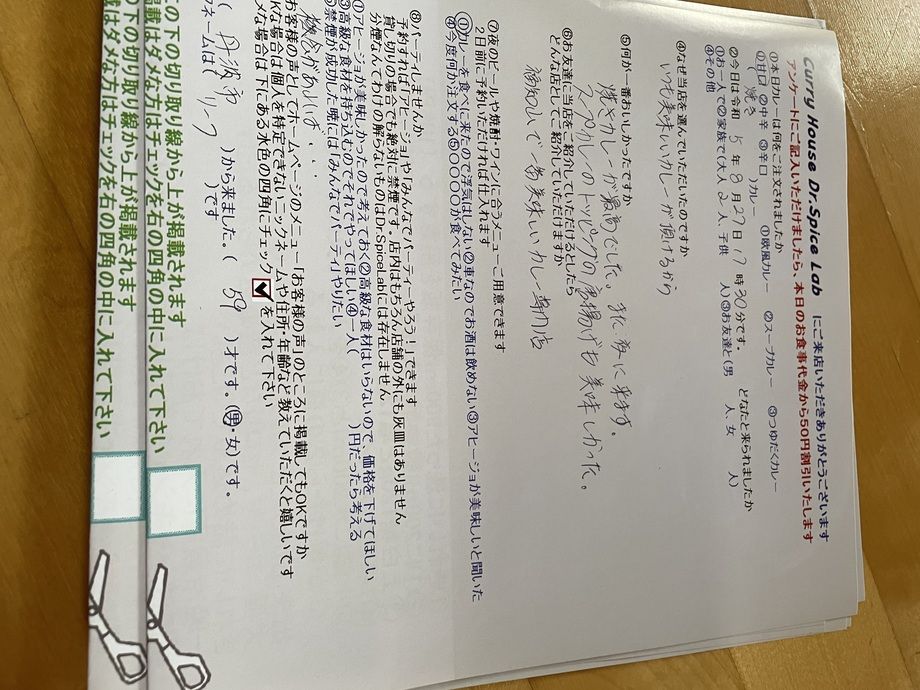 Curry House Dr.Spice Lab にご来店いただきありがとうございます
アンケートにご記入いただけましたら、本日のお食事代金から50円割引いたします
①本日カレーは何をご注文されましたか ①欧風カレー ②スープカレー ③つゆだくカレー
①甘口 ②中辛 ③辛口 (焼き)カレー
②今日は令和 5 年 8 月 27 日 17 時 30 分です。 どなたと来られましたか
①お一人で②家族で(大人 2 人、子供 人)③お友達と(男 人、女 人)
④その他
④なぜ当店を選んでいただいたのですか
いつも美味いカレーが頂けるから
⑤何が一番おいしかったですか
焼きカレーが最高でした。又、食べに来ます。
スープカレーのトッピングの素揚げも美味しかった。
⑥お友達に当店をご紹介していただけるとしたら
どんな店としてご紹介していただけますか
福知山で一番美味しいカレー専門店
⑦夜のビールや焼酎・ワインに合うメニューご用意できます
2日前に予約いただければ仕入れます
①カレーを食べに来たので浮気はしない②車なのでお酒は飲めない③アヒージョが美味しいと聞いた
④今度何か注文する⑤〇〇〇〇が食べてみたい
⑧パーティしませんか
予約すればアヒージョや「みんなでパーティーやろう!」できます
貸し切りの場合でも絶対に禁煙です。店内はもちろん店舗の外にも灰皿はありません
分煙なんてわけの解らないものはDr.SpiceLabには存在しません
①アヒージョが美味しかったので考えておく②高級な食材はいらないので、価格を下げてほしい
③高級な食材を持ち込むのでそれでやってほしい④一人( )円だったら考える
禁煙が成功した暁には「みんなでパーティ」やりたい
機会があれば・・・
お客様の声としてホームページのメニュー「お客様の声」のところに掲載してもOKですか
OKな場合は個人を特定できないニックネームや住所・年齢など教えていただくと嬉しいです
メな場合は下にある水色の四角にチェック✔を入れて下さい
( 丹波市 )から来ました。( 59 )才です。(男・女)です。
クネームは( )です
の下の切り取り線から上が掲載されます
載はダメな方はチェックを右の四角の中に入れて下さい
の下の切り取り線から上が掲載されます
載はダメな方はチェックを右の四角の中に入れて下さい